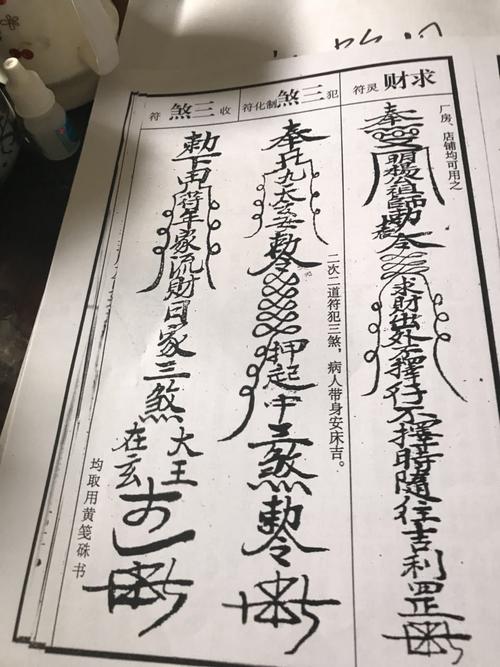 求财灵符
厂房、店铺均可用之
奉
祖師勅令
求財出外不擇行不擇時隨往吉利罡
犯三煞制化符
奉
九天玄女勅令
押起中三煞勅令
二次二道符犯三煞，病人带身安床吉。
收三煞符
勅下
符年家流財日家三煞
大王
在玄
均取用黄笺硃书